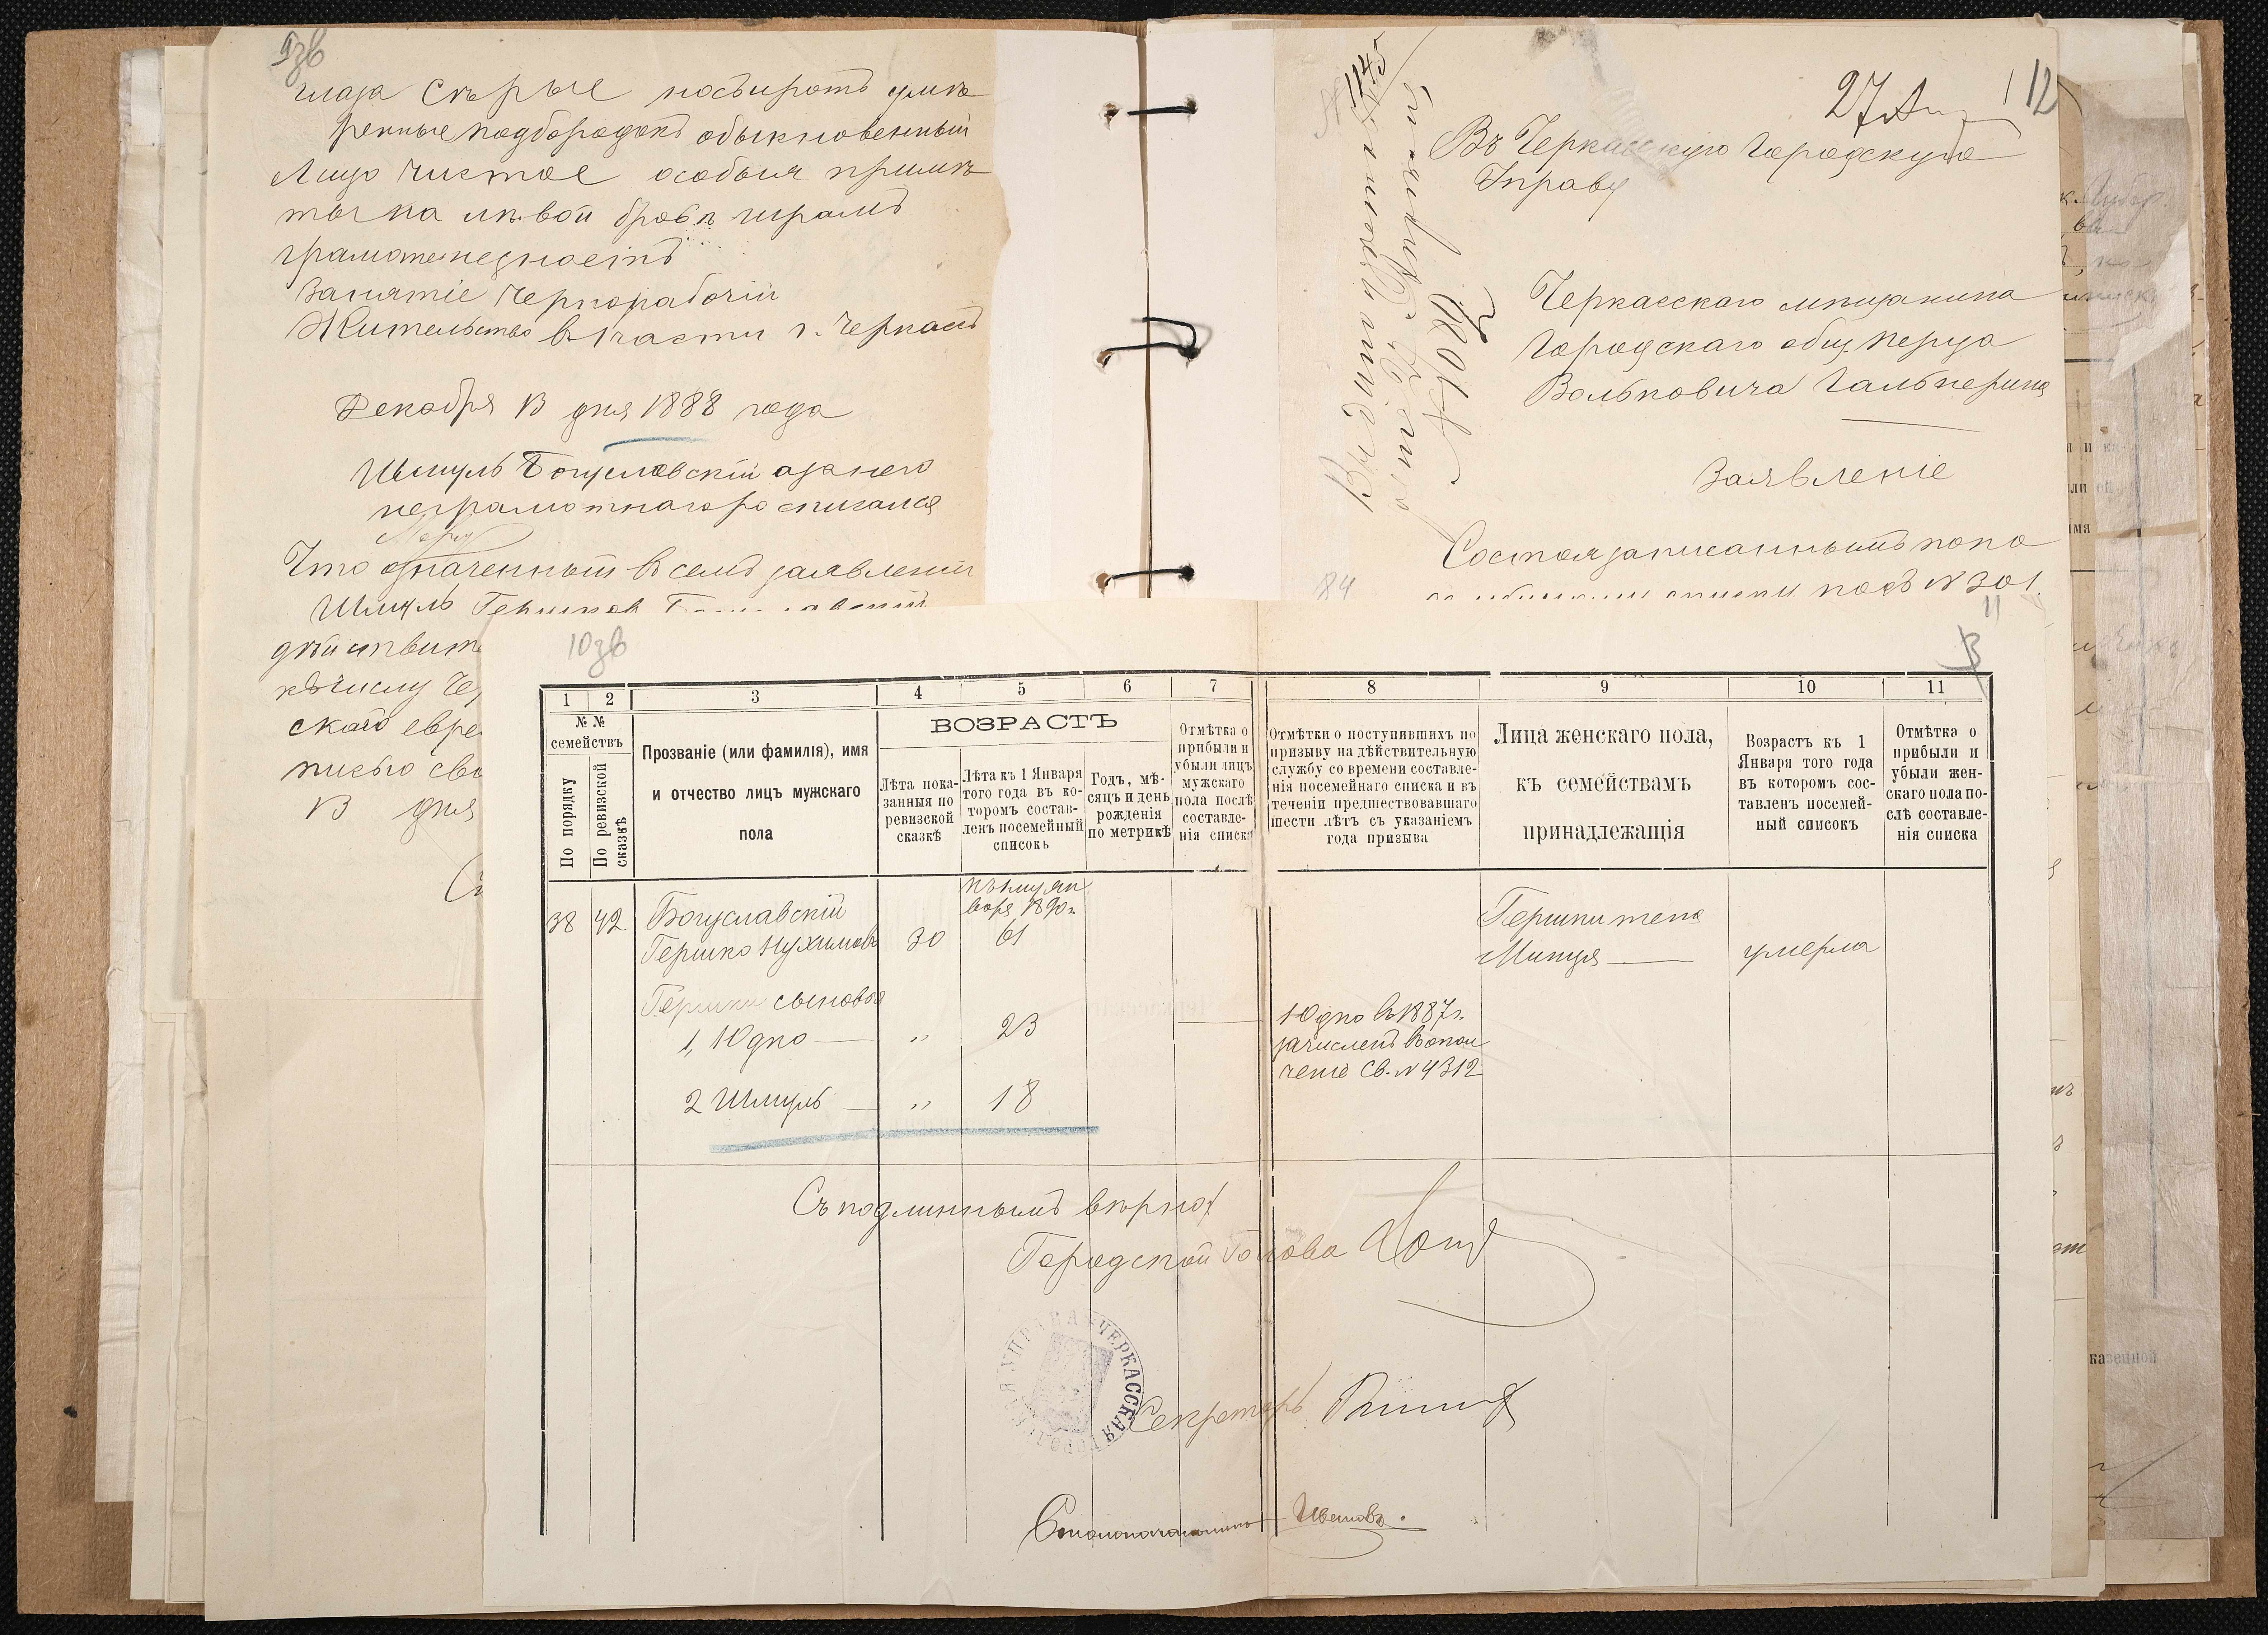 9зв
глаза Сѣрые носъ и ротъ умѣ
ренные подбородокъ обыкновенный
Лицо чистое особыя примѣ
ты на лѣвой бровѣ шрамъ
грамоте не учость
Занятіе Чернорабочій
Жительство в 1 части г. Черкасъ
Декабря 13 дня 1888 года
Шмуль Богуславскій а за него
неграмотнаго росписался
Что означенный въ семъ заявленіи
Шмуль
дѣйствите
къ числу Че
скаго евре
писью сво
13 дня
27 112
Въ Черкасскую Городскую
Управу
Черкасскаго мѣщанина
Городскаго общ. Перца
Вольковича Гальперина
Заявленіе
Состоя записаннымъ по по
подъ N 301.
1145
84
10зв
11
1 2 3 4 5 6 7 8 9 10 11
№ № семействъ
По порядку
По ревизской сказкѣ
Прозваніе (или фамилія), имя
и отчество лицъ мужскаго
пола
ВОЗРАСТЪ
Лѣта пока-
занныя по
ревизской
сказкѣ
Лѣта къ 1 Января
того года въ ко-
торомъ состав-
ленъ посемейный
списокъ
Годъ, мѣ-
сяцъ и день
рожденія
по метрикѣ
Отмѣтка о
прибыли и
убыли лицъ
мужскаго
пола послѣ
составле-
нія списка
Отмѣтки о поступившихъ по
призыву на дѣйствительную
службу со времени составле-
нія посемейнаго списка и въ
теченіи предшествовавшаго
шести лѣтъ съ указаніемъ
года призыва
Лица женскаго пола,
къ семействамъ
принадлежащія
Возрастъ къ 1
Января того года
въ которомъ сос-
тавленъ посемей-
ный списокъ
Отмѣтка о
прибыли и
убыли жен-
скаго пола по-
слѣ составле-
нія списка
къ 1му ян
варя 1890г.
38 42 Богуславскій
Гершко Нухимовъ 30 61
Гершки жена
Минця — умерла
Гершки сыновья
1, Юдко — „ 23
Юдко въ 1887г.
зачисленъ въ опол
ченіе Св. N 4312
2 Шмуль — „ 18
Съ подлиннымъ вѣрно:
Городской Голова
ЧЕРКАССКАЯ ГОРОДСКАЯ УПРАВА
Секретарь
Столоначальникъ Ивановъ.
казенной